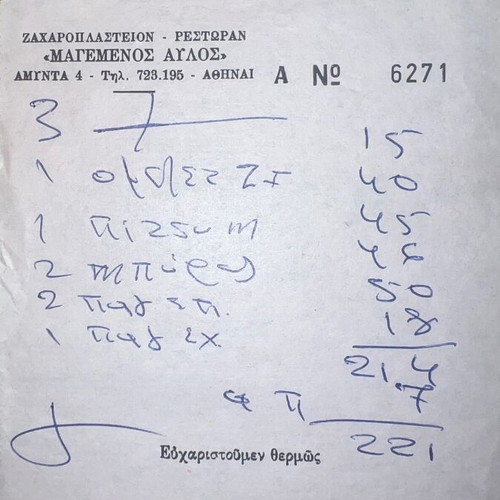 ΖΑΧΑΡΟΠΛΑΣΤΕΙΟΝ - ΡΕΣΤΩΡΑΝ
«ΜΑΓΕΜΕΝΟΣ ΑΥΛΟΣ»
ΑΜΥΝΤΑ 4 - Τηλ. 723.195 - ΑΘΗΝΑΙ Α Νο 6271
3 7 15
1 ομελετ 40
1 45
2 μπύρα 46
2 παγ επ. 50
1 παγ εχ. 18
214
π 7
221
Εὐχαριστοῦμεν θερμῶς